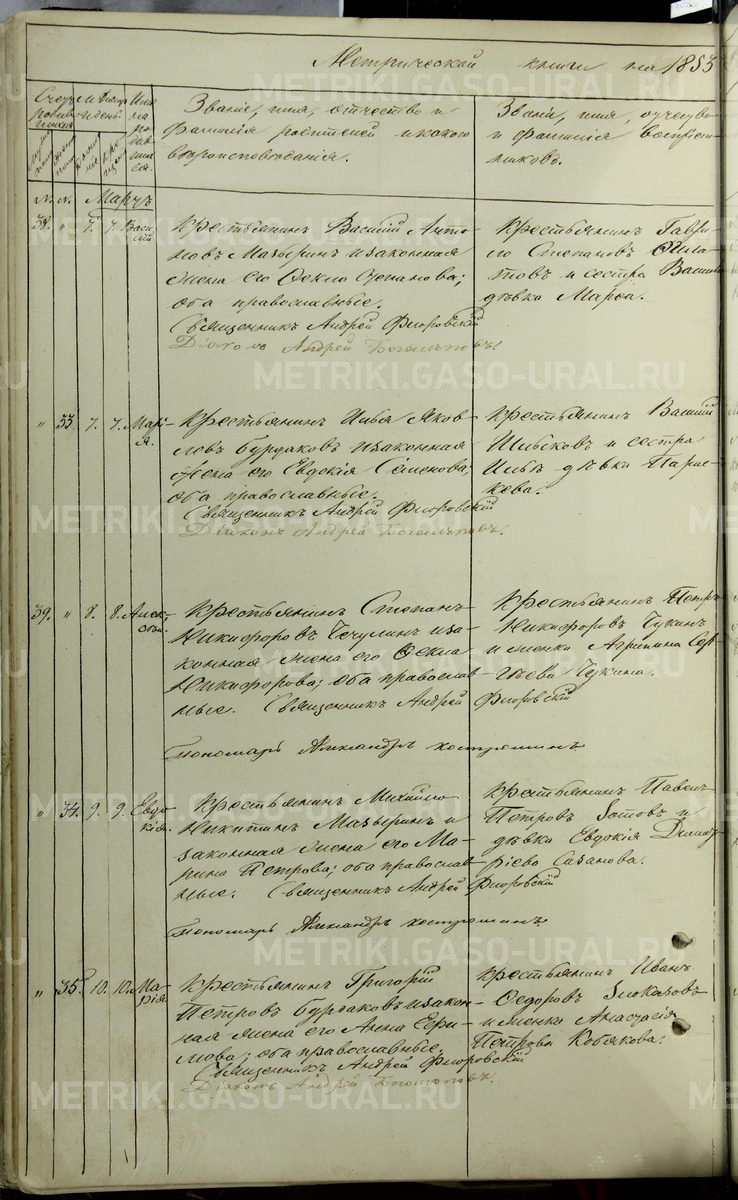 Метрической книги на 1853
Счетъ родившихся
Мѣсяцъ и день
Имена родившихся.
Званіе, имя, отчество и
фамилія родителей и какого
вѣроисповѣданія.
Званіе, имя, отчество
и фамилія воспріем-
никовъ.
М. М. Мартъ
38. " 7. 7. Васи-
лій
Крестьянинъ Василій Анто-
новъ Мазыринъ и законная
жена его Ѳекла Степанова;
оба православные.
Священникъ Андрей Флоровскій
Діаконъ Андрей Боголѣповъ.
Крестьянинъ Гаври-
ло Степановъ
товъ и сестра
дѣвка Марѳа.
" 33. 7. 7. Марі-
я.
Крестьянинъ Илья Яков-
левъ Бурдаковъ и законная
жена его Евдокія Семенова;
оба православные.
Священникъ Андрей Флоровскій
Діаконъ Андрей Боголѣповъ.
Крестьянинъ Василій
и сестра
Ильѣ дѣвка Парас-
кева.
39. " 8. 8. Алек-
сѣй.
Крестьянинъ Степанъ
Никифоровъ Чечулинъ и за-
конная жена его Ѳекла
Никифорова; оба православ-
ные. Священникъ Андрей Флоровскій
Пономарь Александръ Костроминъ
Крестьянинъ Петръ
Никифоровъ Чукинъ
и женка Агрипина Сер-
гѣева Чукина.
" 34. 9. 9. Евдо-
кія.
Крестьянинъ Михайло
Никитинъ Мазыринъ и
законная жена его Ма-
рина Петрова; оба православ-
ные. Священникъ Андрей Флоровскій
Пономарь Александръ Костроминъ.
Крестьянинъ Павелъ
Петровъ Зотовъ и
дѣвка Евдокія Димит-
ріева Сазанова.
" 35. 10. 10. Ма-
рія.
Крестьянинъ Григорій
Петровъ Бурдаковъ и закон-
ная жена его Анна Ефи-
мова; оба православные.
Священникъ Андрей Флоровскій
Діаконъ Андрей Боголѣповъ.
Крестьянинъ Иванъ
Ѳедоровъ Злоказовъ
и женка Анастасія
Петрова Кобякова.
METRIKI.GASO-URAL.RU